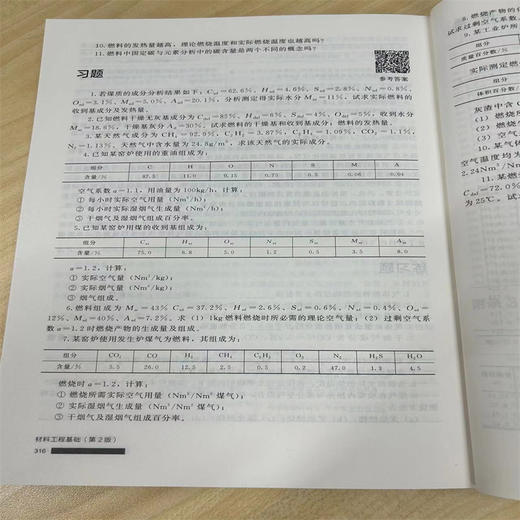 10.燃料的发热量越高，理论燃烧温度和实际燃烧温度也越高吗？
11.燃料中固定碳与元素分析中的碳含量是两个不同的概念吗？
习题
参考答案
1.若煤质的成分分析结果如下：Cad=62.6%，Had=4.6%，Sad=2.8%，Nad=0.8%
Oad=3.1%，Mad=5.0%，Aad=20.1%，分析测定得实际水分Mar=11%，试求实际燃料的
收到基成分及发热量。
2.已知燃料干燥无灰基成分为Cdaf=85%，Hdaf=6%，Sdaf=4%，Odaf=5%，收到水分
Mar=18.6%，干燥基灰分Ad=30%；试求燃料的干燥基和收到基成分；燃料的发热量。
3.某天然气成分为CH4=92.9%，C2H6=3.87%，C3H8=1.09%，CO2=1.1%，
N2=1.13%，天然气中含水量为24.8g/m³，求该天然气的实际成分。
4.已知某窑炉使用的重油组成为：
组分 C H O N S M A
含量/% 87.5 11.0 0.15 0.75 0.5 0.06 0.04
空气系数α=1.1，用油量为100kg/h，计算：
① 每小时实际空气用量（Nm³/h）；
② 每小时实际湿烟气生成量（Nm³/h）；
③ 干烟气及湿烟气组成百分率。
5.已知某窑炉用煤的收到基组成为：
组分 Car Har Oar Nar Sar Mar Aar
含量/% 75.0 6.8 5.0 1.2 0.5 3.5 8.0
α=1.2，计算：
① 实际空气量（Nm³/kg）；
② 实际烟气量（Nm³/kg）；
③ 烟气组成。
=43% Cad=37.2%，Had=2.6%，Sad=0.6%，Nad=0.4%，Oad=
12%，Mad=40%，Aad=7.2%。求（1）1kg燃料燃烧时所必需的理论空气量；（2）过剩空气系
数α=1.2时燃烧产物的生成量及组成。
7.某窑炉使用发生炉煤气为燃料，其组成为：
组分 CO2 CO H2 CH4 C2H4 O2 N2 H2S H2O
含量/% 5.5 26.0 12.5 2.5 0.5 0.2 47.0 1.3 4.5
燃烧时α=1.2，计算：
① 燃烧所需实际空气用量（Nm³/Nm³煤气）；
② 实际湿烟气生成量（Nm³/Nm³煤气）；
③ 干烟气及湿烟气组成百分率。
材料工程基础（第2版）
316
8.燃烧产物的
试求过剩空气系数
9.某工业炉所
组分
质量百分数/%
实际测定燃
组分
体积百分数/%
灰渣中含
（1）燃烧
（2）燃烧
（3）燃烧
10.某气体
空气温度均为
2.24Nm³/Nm³
11.某燃
Cdaf=72.0%
为25℃。试求